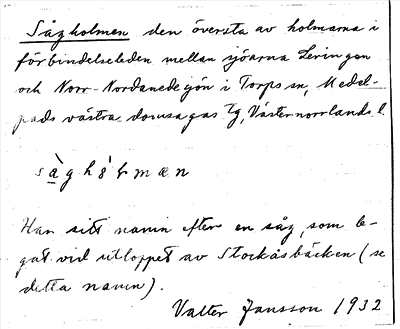 Sågholmen den översta av holmarna i
förbindelseleden mellan sjöarna Leringen
och Norr-Nordanedesjön i Torps sn, Medel-
pads västra domsagas tg, Västernorrlands l.
Har sitt namn efter en såg, som le-
gat vid utloppet av Stockåsbäcken (se
detta namn).
Valter Jansson 1932